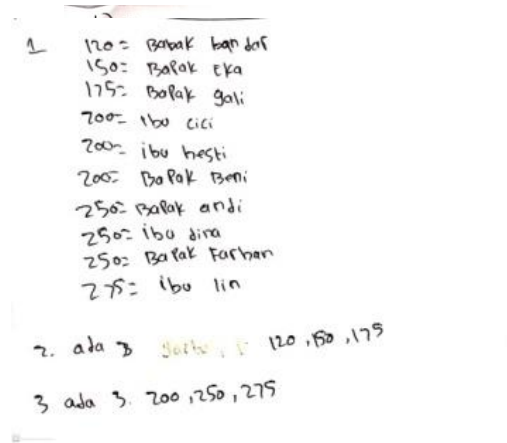 1 120 = Babak bandar
150 = Bapak Eka
175 = Bapak gali
200 = ibu cici
200 = ibu hesti
200 = Bapak Beni
250 = Bapak andi
250 = ibu dina
250 = Bapak Farhan
275 = ibu lin
2. ada 3 120, 150, 175
3 ada 3. 200, 250, 275